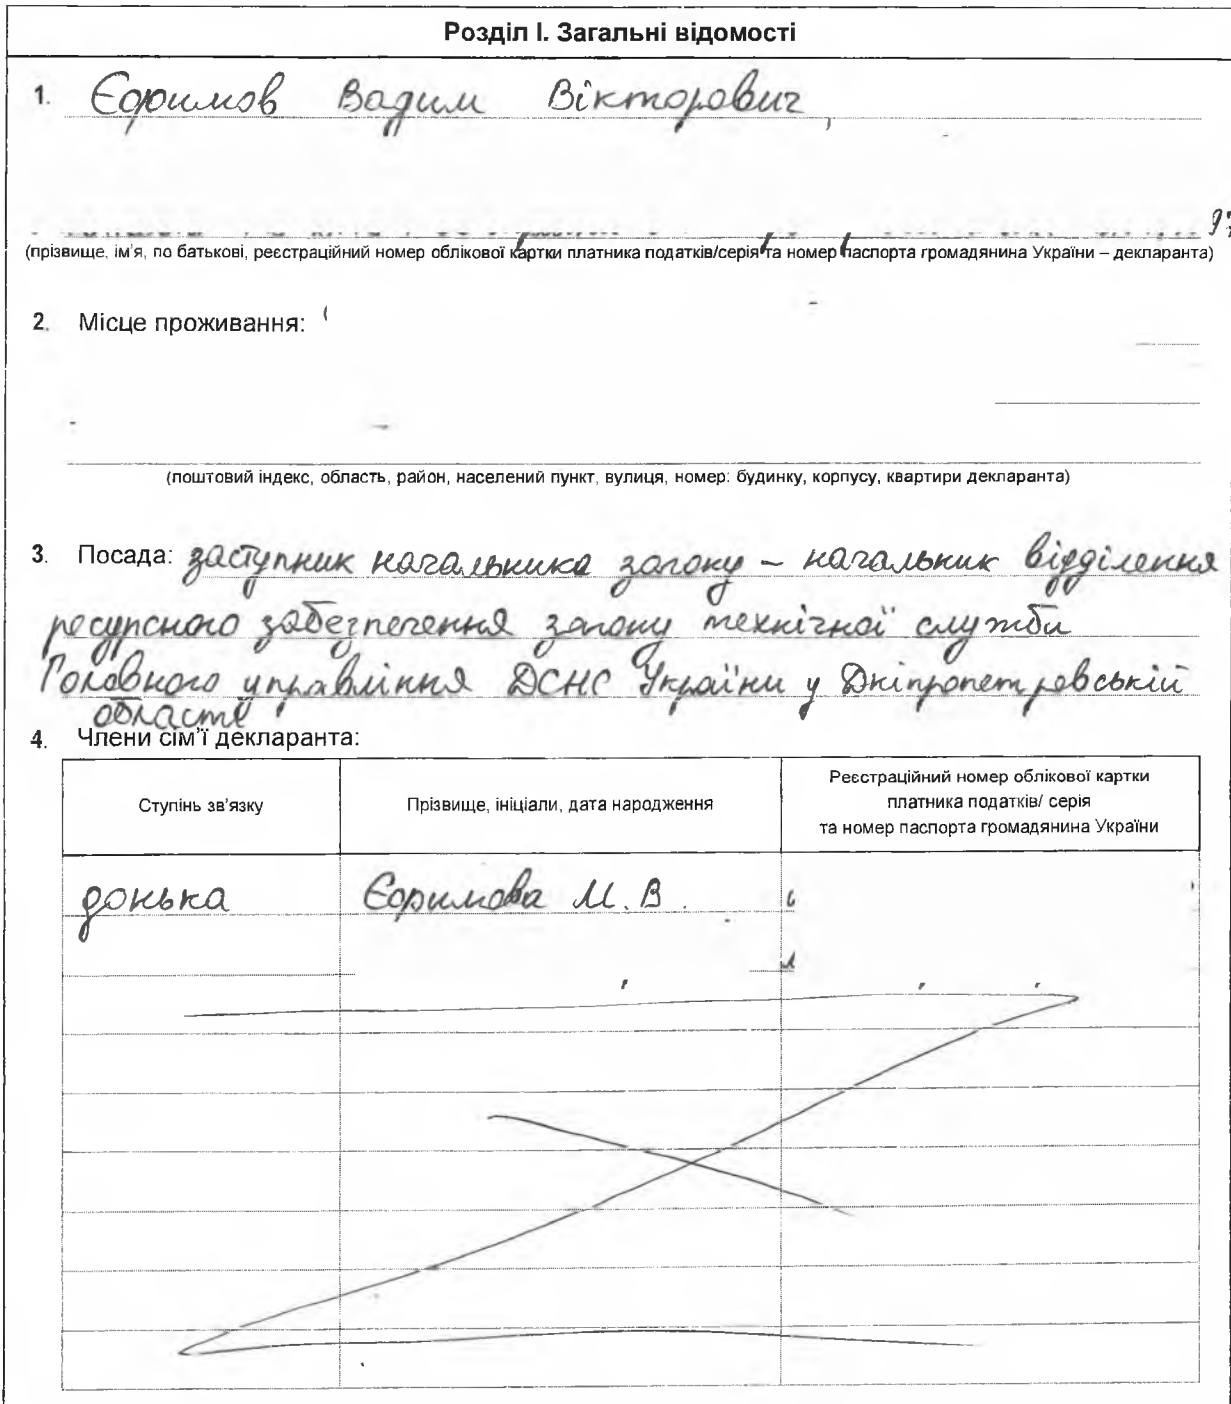 Розділ І. Загальні відомості
1. Єфимов Вадим Вікторович,
(прізвище, ім'я, по батькові, реєстраційний номер облікової картки платника податків/серія та номер паспорта громадянина України – декларанта)
2. Місце проживання:
(поштовий індекс, область, район, населений пункт, вулиця, номер: будинку, корпусу, квартири декларанта)
3. Посада: заступник начальника загону – начальник відділення
ресурсного забезпечення загону технічної служби
Головного управління ДСНС України у Дніпропетровській
області
4. Члени сім'ї декларанта:
Ступінь зв'язку
Прізвище, ініціали, дата народження
Реєстраційний номер облікової картки
платника податків/ серія
та номер паспорта громадянина України
донька Єфимова М. В.